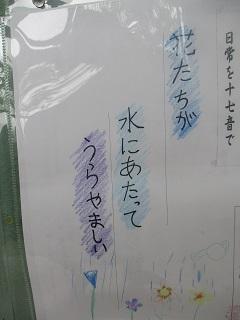 日常を十七音で
花たちが
水にあたって
うらやましい